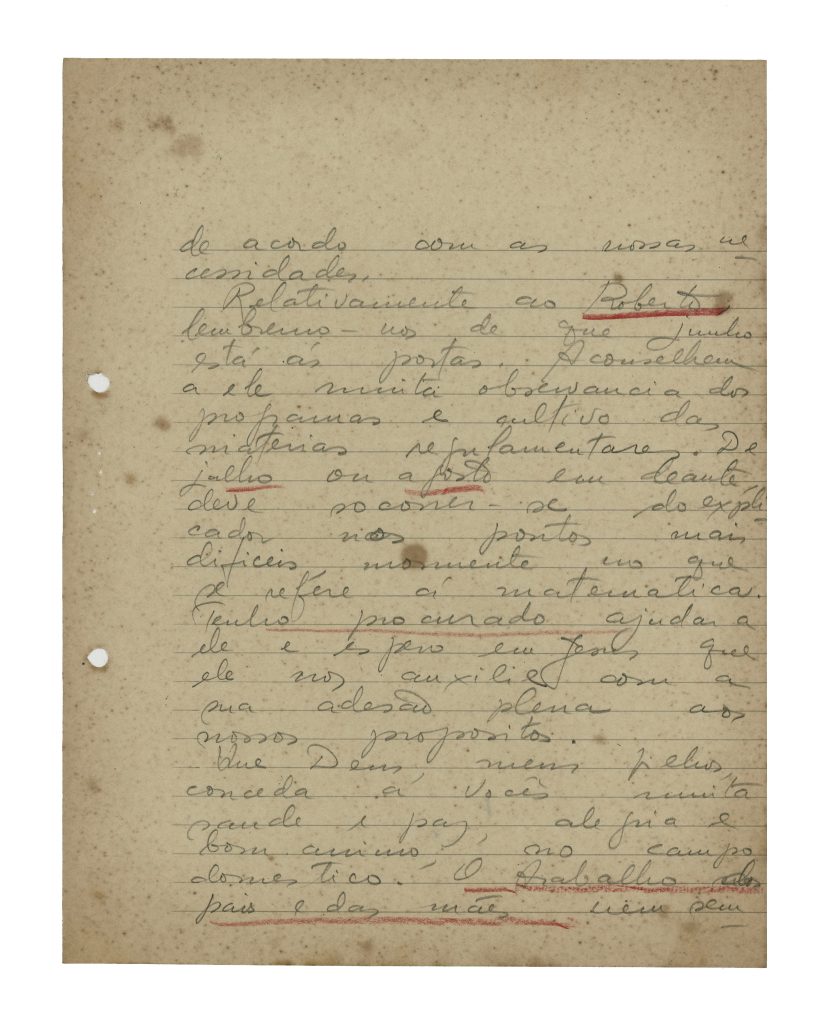 de acordo com as nossas ne
cessidades.
Relativamente ao Roberto,
lembremo-nos de que junho
está ás portas. Aconselhem
a ele muita observancia dos
programas e cultivo das
matérias regulamentares. De
julho ou agosto em deante,
deve socorrer-se do expli-
cador nos pontos mais
dificeis, mormente no que
se refére á matematica.
Tenho procurado ajudar a
ele e espero em Jesus que
ele nos auxilie com a
sua adesão plena aos
nossos propositos.
Que Deus, meus filhos,
conceda á vocês muita
saude e paz, alegria e
bom animo, no campo
domestico. O trabalho dos
pais e das mães, nem sem